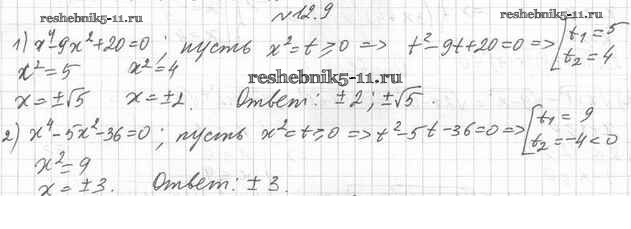 №12.9
reshebnik5-11.ru reshebnik5-11.ru
1) x⁴-9x²+20=0; пусть x²=t≥0 => t²-9t+20=0 => [t₁=5 t₂=4
x²=5 x²=4
reshebnik5-11.ru
x=±√5 x=±2. Ответ: ±2; ±√5.
2) x⁴-5x²-36=0; пусть x²=t≥0 => t²-5t-36=0 => [t₁=9 t₂=-4<0
x²=9
x=±3. Ответ: ±3.